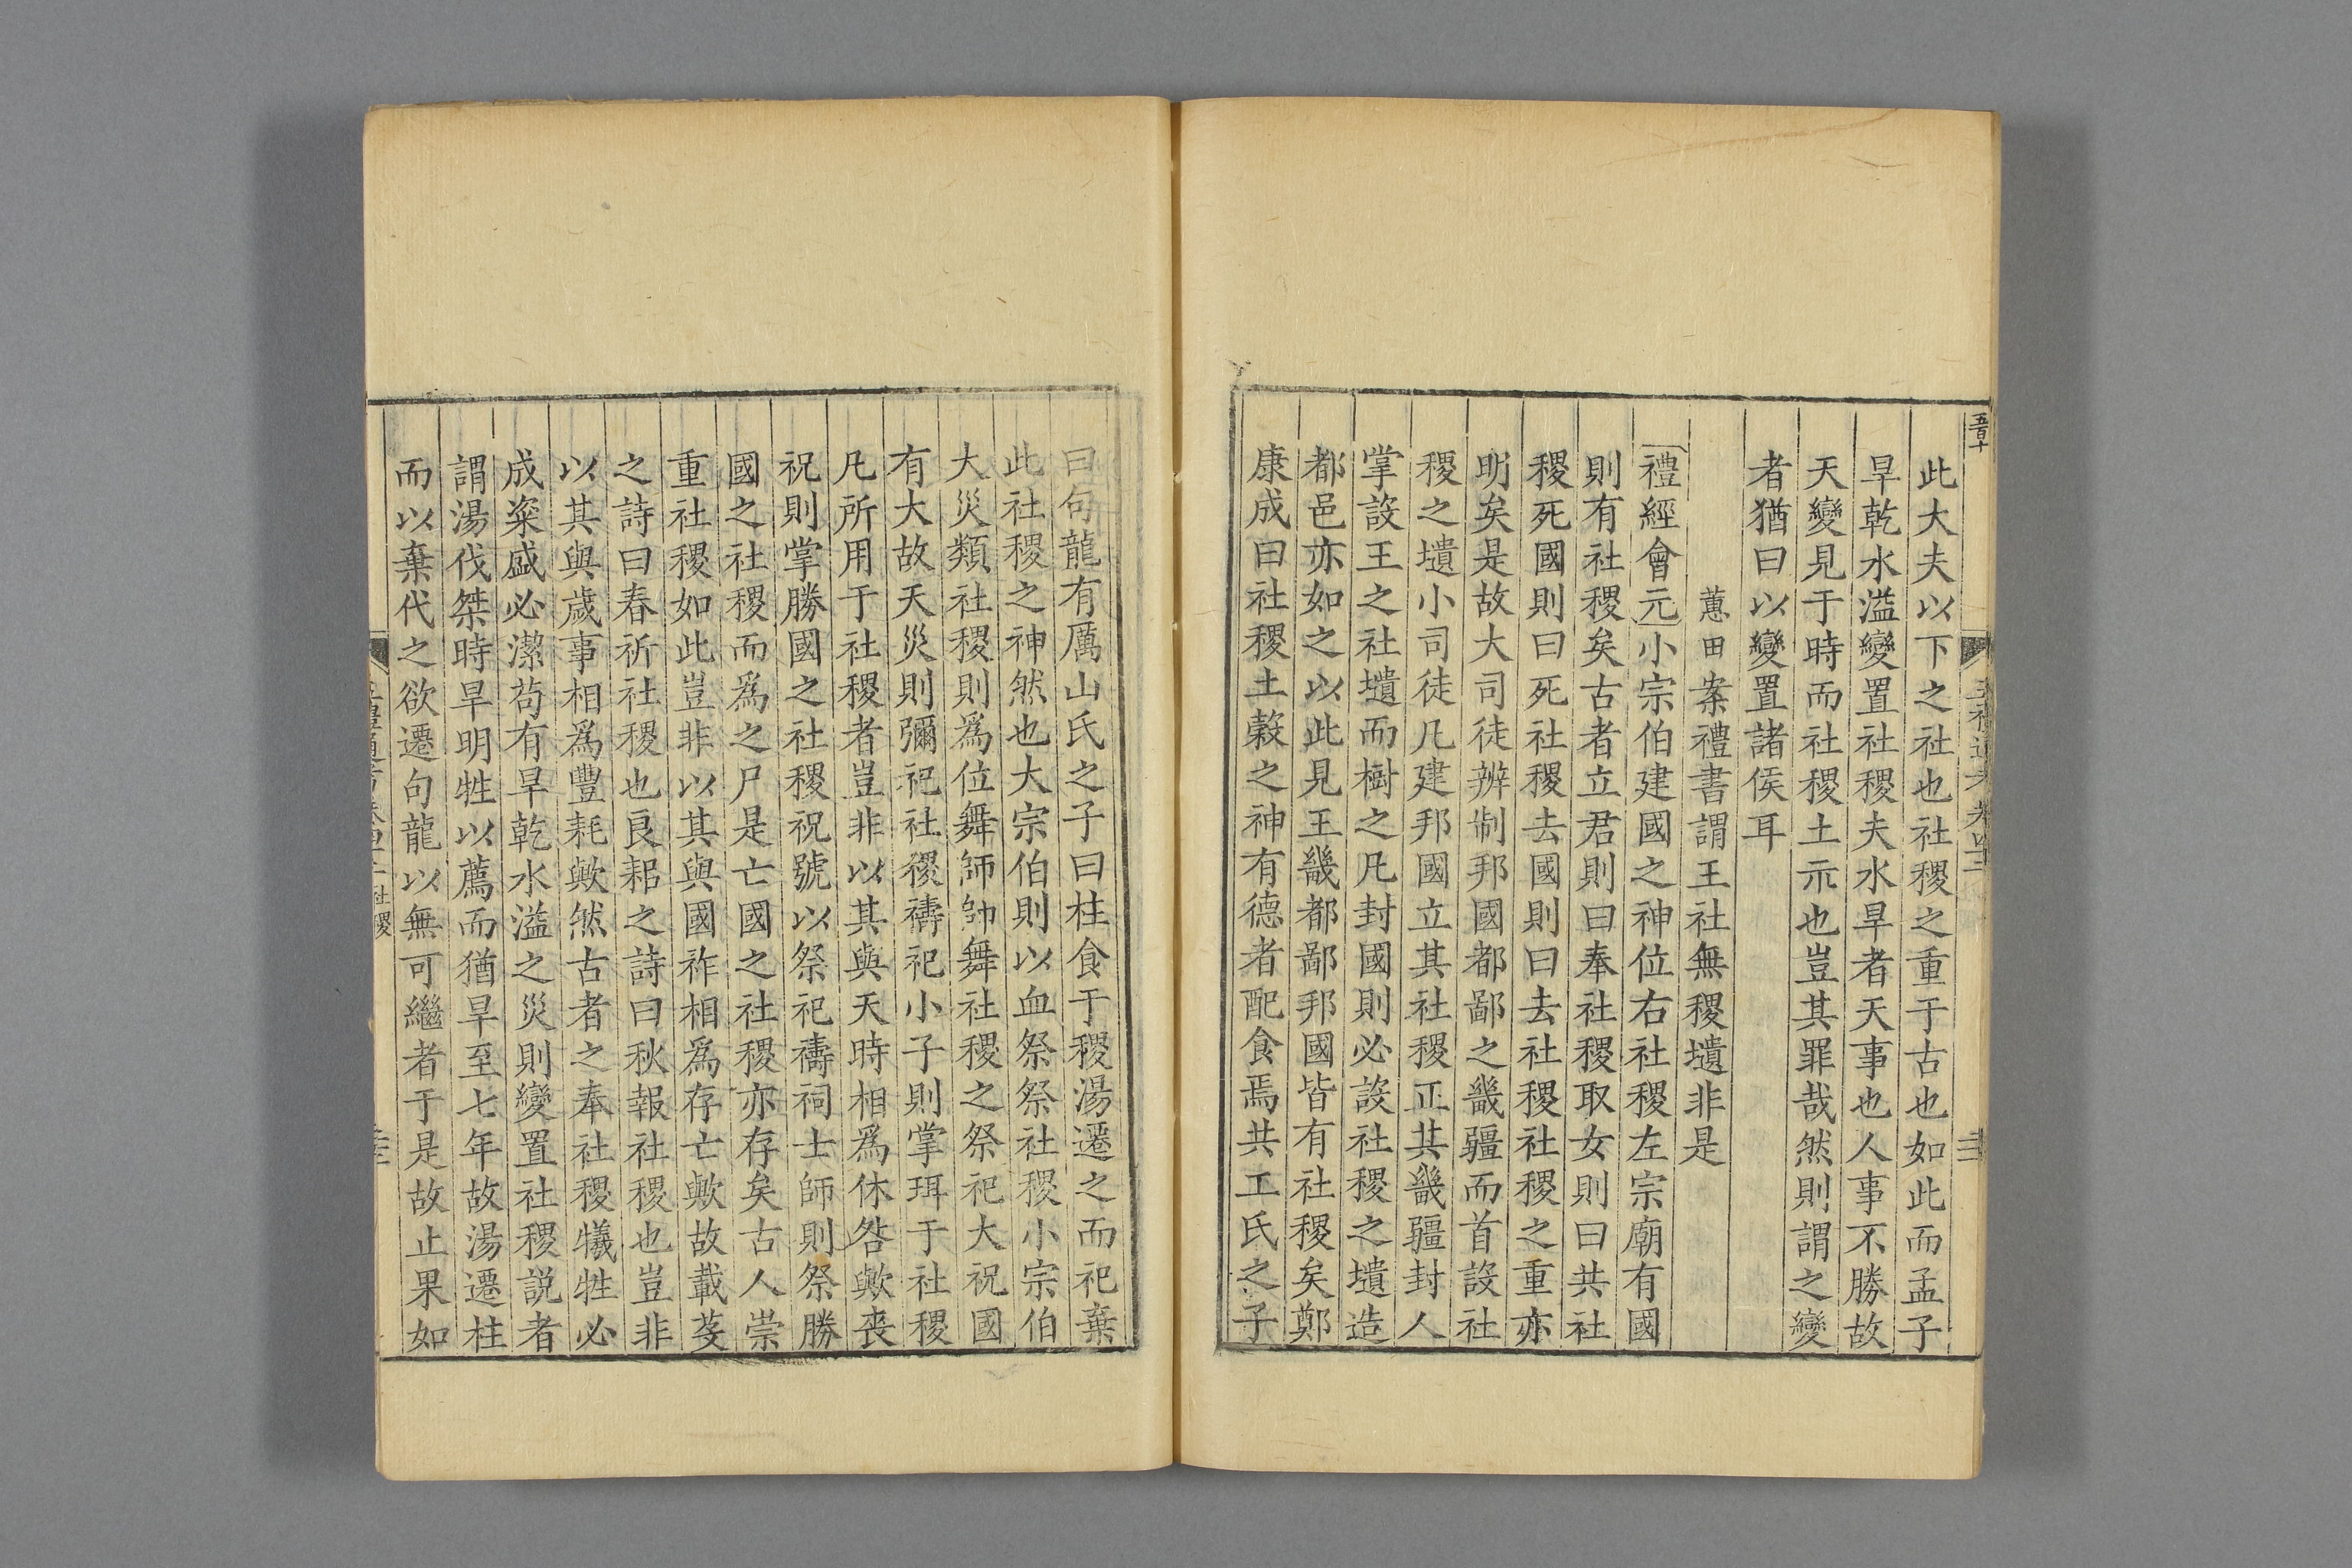 五百十
此大夫以下之社也社稷之重于古也如此而孟子
旱乾水溢變置社稷夫水旱者天事也人事不勝故
天變見于時而社稷土示也豈其罪哉然則謂之變
者猶曰以變置諸侯耳
蕙田案禮書謂王社無稷壝非是
禮經會元小宗伯建國之神位右社稷左宗廟有國
則有社稷矣古者立君則曰奉社稷取女則曰共社
稷死國則曰死社稷去國則曰去社稷社稷之重亦
明矣是故大司徒辨制邦國都鄙之畿疆而首設社
稷之壝小司徒凡建邦國立其社稷正其畿疆封人
掌設王之社壝而樹之凡封國則必設社稷之壝造
都邑亦如之以此見王畿都鄙邦國皆有社稷矣鄭
康成曰社稷土穀之神有德者配食焉共工氏之子
曰句龍有厲山氏之子曰柱食于稷湯遷之而祀棄
此社稷之神然也大宗伯則以血祭祭社稷小宗伯
大災類社稷則爲位舞師帥舞社稷之祭祀大祝國
有大故天災則彌祀社稷禱祀小子則掌珥于社稷
凡所用于社稷者豈非以其與天時相爲休咎歟喪
祝則掌勝國之社稷祝號以祭祀禱祠士師則祭勝
國之社稷而爲之尸是亡國之社稷亦存矣古人崇
重社稷如此豈非以其與國祚相爲存亡歟故載芟
之詩曰春祈社稷也良耜之詩曰秋報社稷也豈非
以其與歲事相爲豐耗歟然古者之奉社稷犧牲必
成粢盛必潔苟有旱乾水溢之災則變置社稷説者
謂湯伐桀時旱明牲以薦而猶旱至七年故湯遷柱
而以棄代之欲遷句龍以無可繼者于是故止果如
社稷